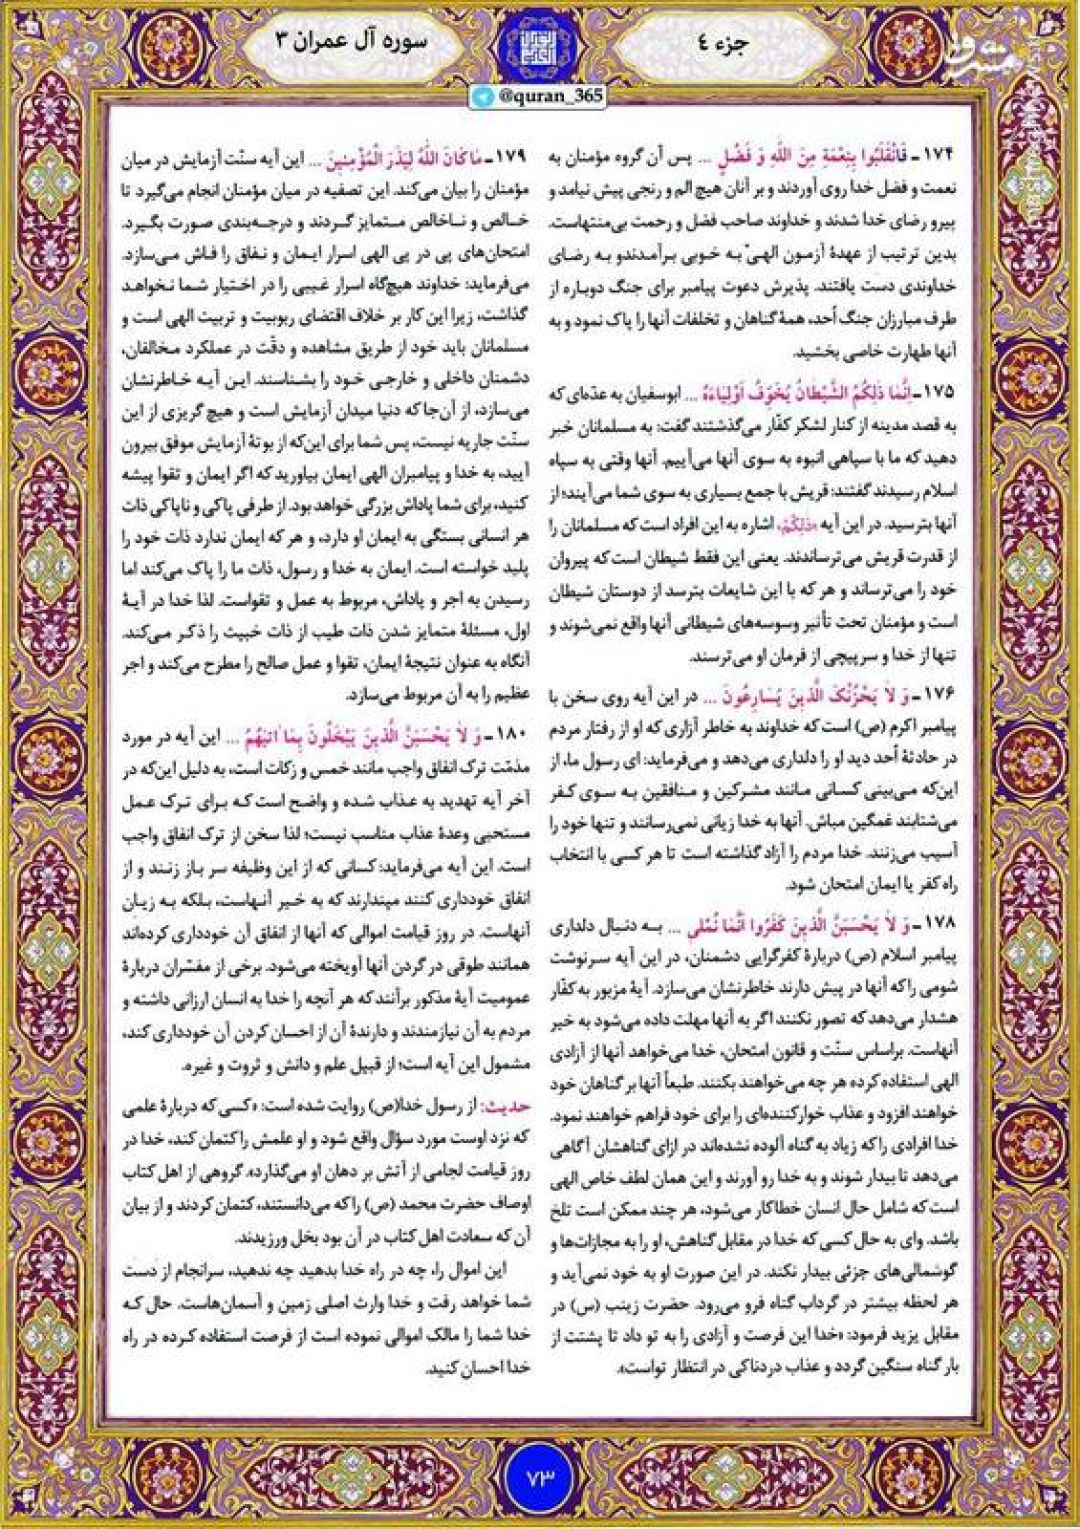 جزء ٤
سوره آل عمران ٣
@quran_365
۱۷۴ـ فَانْقَلَبُوا بِنِعْمَةٍ مِنَ اللّٰهِ وَ فَضْلٍ ... پس آن گروه مؤمنان به
نعمت و فضل خدا روی آوردند و بر آنان هیچ الم و رنجی پیش نیامد و
پیرو رضای خدا شدند و خداوند صاحب فضل و رحمت بی‌منتهاست.
بدین ترتیب از عهدهٔ آزمون الهیّ به خوبی برآمدندو به رضای
خداوندی دست یافتند. پذیرش دعوت پیامبر برای جنگ دوباره از
طرف مبارزان جنگ اُحد، همهٔ گناهان و تخلفات آنها را پاک نمود و به
آنها طهارت خاصی بخشید.
۱۷۵ـ اِنَّمَا ذٰلِكُمُ الشَّيْطَانُ يُخَوِّفُ اَوْلِيَاءَهُ ... ابوسفیان به عدّه‌ای که
به قصد مدینه از کنار لشکر کفّار می‌گذشتند گفت: به مسلمانان خبر
دهید که ما با سپاهی انبوه به سوی آنها می‌آییم. آنها وقتی به سپاه
اسلام رسیدند گفتند: قریش با جمع بسیاری به سوی شما می‌آیند؛ از
آنها بترسید. در این آیه «ذٰلِكُمْ» اشاره به این افراد است که مسلمانان را
از قدرت قریش می‌ترساندند. یعنی این فقط شیطان است که پیروان
خود را می‌ترساند و هر که با این شایعات بترسد از دوستان شیطان
است و مؤمنان تحت تأثیر وسوسه‌های شیطانی آنها واقع نمی‌شوند و
تنها از خدا و سرپیچی از فرمان او می‌ترسند.
۱۷۶ـ وَ لاٰ يَحْزُنْكَ الَّذِينَ يُسَارِعُونَ ... در این آیه روی سخن با
پیامبر اکرم (ص) است که خداوند به خاطر آزاری که او از رفتار مردم
در حادثهٔ اُحد دید او را دلداری می‌دهد و می‌فرماید: ای رسول ما، از
این‌که می‌بینی کسانی مانند مشرکین و منافقین به سوی کفر
می‌شتابند غمگین مباش. آنها به خدا زیانی نمی‌رسانند و تنها خود را
آسیب می‌زنند. خدا مردم را آزاد گذاشته است تا هر کسی با انتخاب
راه کفر یا ایمان امتحان شود.
۱۷۸ـ وَ لاٰ يَحْسَبَنَّ الَّذِينَ كَفَرُوا اَنَّمَا نُمْلِي ... به دنبال دلداری
پیامبر اسلام (ص) دربارهٔ کفرگرایی دشمنان، در این آیه سرنوشت
شومی را که آنها در پیش دارند خاطرنشان می‌سازد. آیهٔ مزبور به کفّار
هشدار می‌دهد که تصور نکنند اگر به آنها مهلت داده می‌شود به خیر
آنهاست. براساس سنّت و قانون امتحان، خدا می‌خواهد آنها از آزادی
الهی استفاده کرده هر چه می‌خواهند بکنند. طبعاً آنها بر گناهان خود
خواهند افزود و عذاب خوارکننده‌ای را برای خود فراهم خواهند نمود.
خدا افرادی را که زیاد به گناه آلوده نشده‌اند در ازای گناهشان آگاهی
می‌دهد تا بیدار شوند و به خدا رو آورند و این همان لطف خاص الهی
است که شامل حال انسان خطاکار می‌شود، هر چند ممکن است تلخ
باشد. وای به حال کسی که خدا در مقابل گناهش، او را به مجازات‌ها و
گوشمالی‌های جزئی بیدار نکند. در این صورت او به خود نمی‌آید و
هر لحظه بیشتر در گرداب گناه فرو می‌رود. حضرت زینب (س) در
مقابل یزید فرمود: «خدا این فرصت و آزادی را به تو داد تا پشتت از
بار گناه سنگین گردد و عذاب دردناکی در انتظار تواست».
۱۷۹ـ مَا كَانَ اللّٰهُ لِيَذَرَ الْمُؤْمِنِينَ ... این آیه سنّت آزمایش در میان
مؤمنان را بیان می‌کند. این تصفیه در میان مؤمنان انجام می‌گیرد تا
خالص و ناخالص متمایز گردند و درجه‌بندی صورت بگیرد.
امتحان‌های پی در پی الهی اسرار ایمان و نفاق را فاش می‌سازد.
می‌فرماید: خداوند هیچ‌گاه اسرار غیبی را در اختیار شما نخواهد
گذاشت، زیرا این کار بر خلاف اقتضای ربوبیت و تربیت الهی است و
مسلمانان باید خود از طریق مشاهده و دقّت در عملکرد مخالفان،
دشمنان داخلی و خارجی خود را بشناسند. این آیه خاطرنشان
می‌سازد، از آن‌جا که دنیا میدان آزمایش است و هیچ گریزی از این
سنّت جاریه نیست، پس شما برای این‌که از بوتهٔ آزمایش موفق بیرون
آیید، به خدا و پیامبران الهی ایمان بیاورید که اگر ایمان و تقوا پیشه
کنید، برای شما پاداش بزرگی خواهد بود. از طرفی پاکی و ناپاکی ذات
هر انسانی بستگی به ایمان او دارد، و هر که ایمان ندارد ذات خود را
پلید خواسته است. ایمان به خدا و رسول، ذات ما را پاک می‌کند اما
رسیدن به اجر و پاداش، مربوط به عمل و تقواست. لذا خدا در آیهٔ
اول، مسئلهٔ متمایز شدن ذات طیب از ذات خبیث را ذکر می‌کند.
آنگاه به عنوان نتیجهٔ ایمان، تقوا و عمل صالح را مطرح می‌کند و اجر
عظیم را به آن مربوط می‌سازد.
۱۸۰ـ وَ لاٰ يَحْسَبَنَّ الَّذِينَ يَبْخَلُونَ بِمَا اٰتٰيهُمُ ... این آیه در مورد
مذمّت ترک انفاق واجب مانند خمس و زکات است، به دلیل این‌که در
آخر آیه تهدید به عذاب شده و واضح است که برای ترک عمل
مستحبی وعدهٔ عذاب مناسب نیست؛ لذا سخن از ترک انفاق واجب
است. این آیه می‌فرماید: کسانی که از این وظیفه سر باز زنند و از
انفاق خودداری کنند مپندارند که به خیر آنهاست، بلکه به زیان
آنهاست. در روز قیامت اموالی که آنها از انفاق آن خودداری کرده‌اند
همانند طوقی در گردن آنها آویخته می‌شود. برخی از مفسّران دربارهٔ
عمومیت آیهٔ مذکور برآنند که هر آنچه را خدا به انسان ارزانی داشته و
مردم به آن نیازمندند و دارندهٔ آن از احسان کردن آن خودداری کند،
مشمول این آیه است؛ از قبیل علم و دانش و ثروت و غیره.
حدیث: از رسول خدا(ص) روایت شده است: «کسی که دربارهٔ علمی
که نزد اوست مورد سؤال واقع شود و او علمش را کتمان کند، خدا در
روز قیامت لجامی از آتش بر دهان او می‌گذارد». گروهی از اهل کتاب
اوصاف حضرت محمد (ص) را که می‌دانستند، کتمان کردند و از بیان
آن که سعادت اهل کتاب در آن بود بخل ورزیدند.
این اموال را، چه در راه خدا بدهید چه ندهید، سرانجام از دست
شما خواهد رفت و خدا وارث اصلی زمین و آسمان‌هاست. حال که
خدا شما را مالک اموالی نموده است از فرصت استفاده کرده در راه
خدا احسان کنید.
۷۳